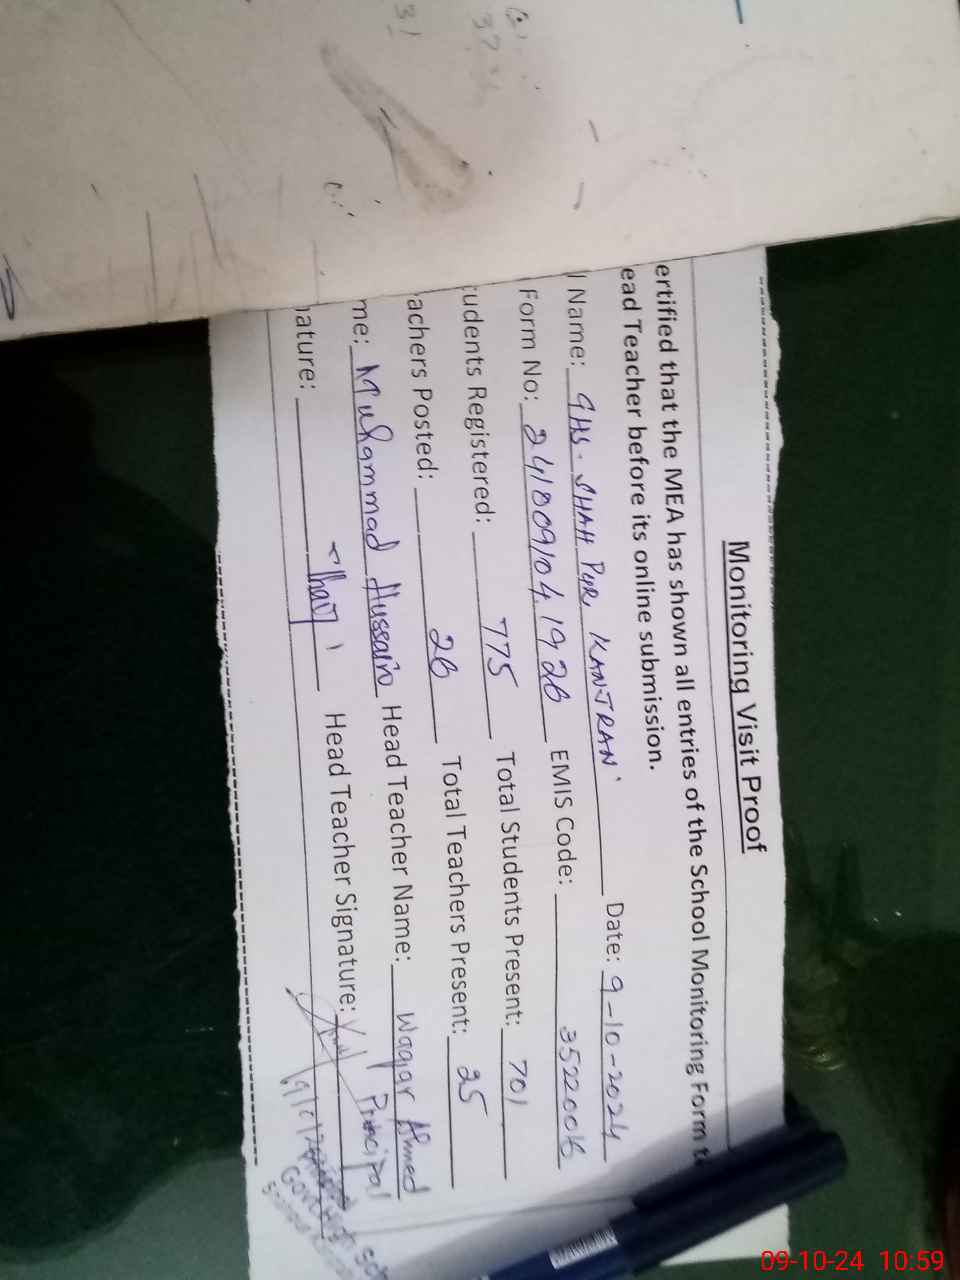 Monitoring Visit Proof
ertified that the MEA has shown all entries of the School Monitoring Form t
ead Teacher before its online submission.
l Name: GHS. SHAH PUR KANJRAN Date: 9-10-2024
Form No: 241009104.1926 EMIS Code:
tudents Registered: 775 Total Students Present: 701
achers Posted: 26 Total Teachers Present: 25
me: Muhammad Hussain Head Teacher Name: Waqar Ahmed
nature: Head Teacher Signature:
Principal
09-10-24 10:59